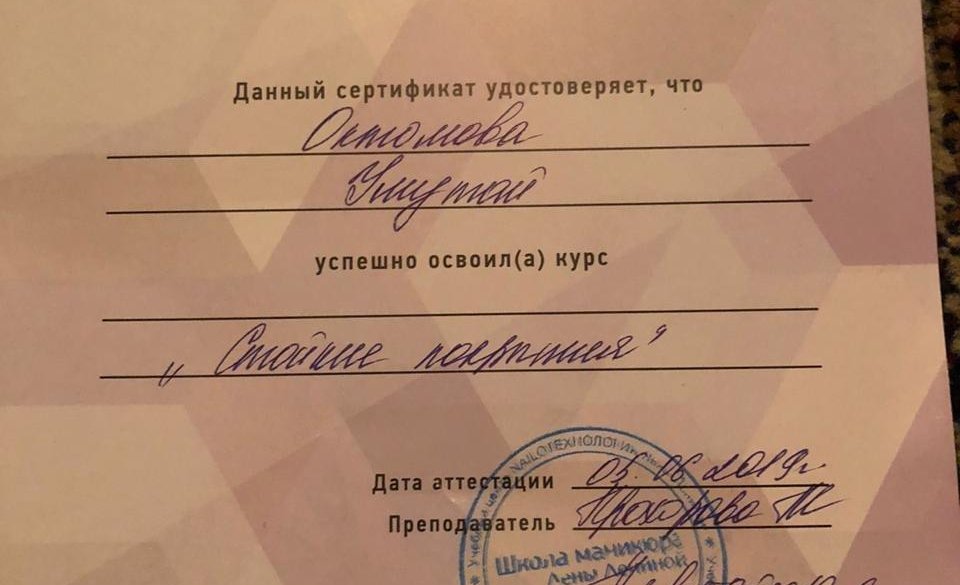 Данный сертификат удостоверяет, что
Октомова
Умутай
успешно освоил(а) курс
„Стойкие покрытия"
Дата аттестации 05.06.2019г.
Преподаватель Прохорова
Школа маникюра
Лены Лениной